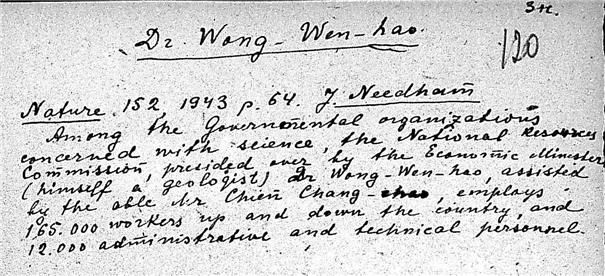 Sn.
Dr. Wong-Wen-hao.
120
Nature. 152 1943 p. 64. J. Needham
Among the Governmental organizations
concerned with science, the National Resources
Commission, presided over by the Economic Minister
(himself a geologist) Dr Wong-Wen-hao, assisted
by the able Mr Chien Chang-chao, employs
165.000 workers up and down the country, and
12.000 administrative and technical personnel.